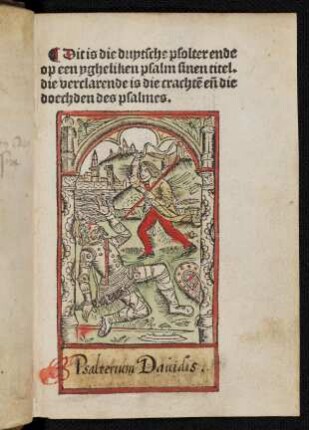 ¶ Dit is die duytsche psolter ende
op een ygheliken psalm sinen titel.
die verclarende is die crachtē en̄ die
doechden des psalmes.
Psalterium Dauidis.